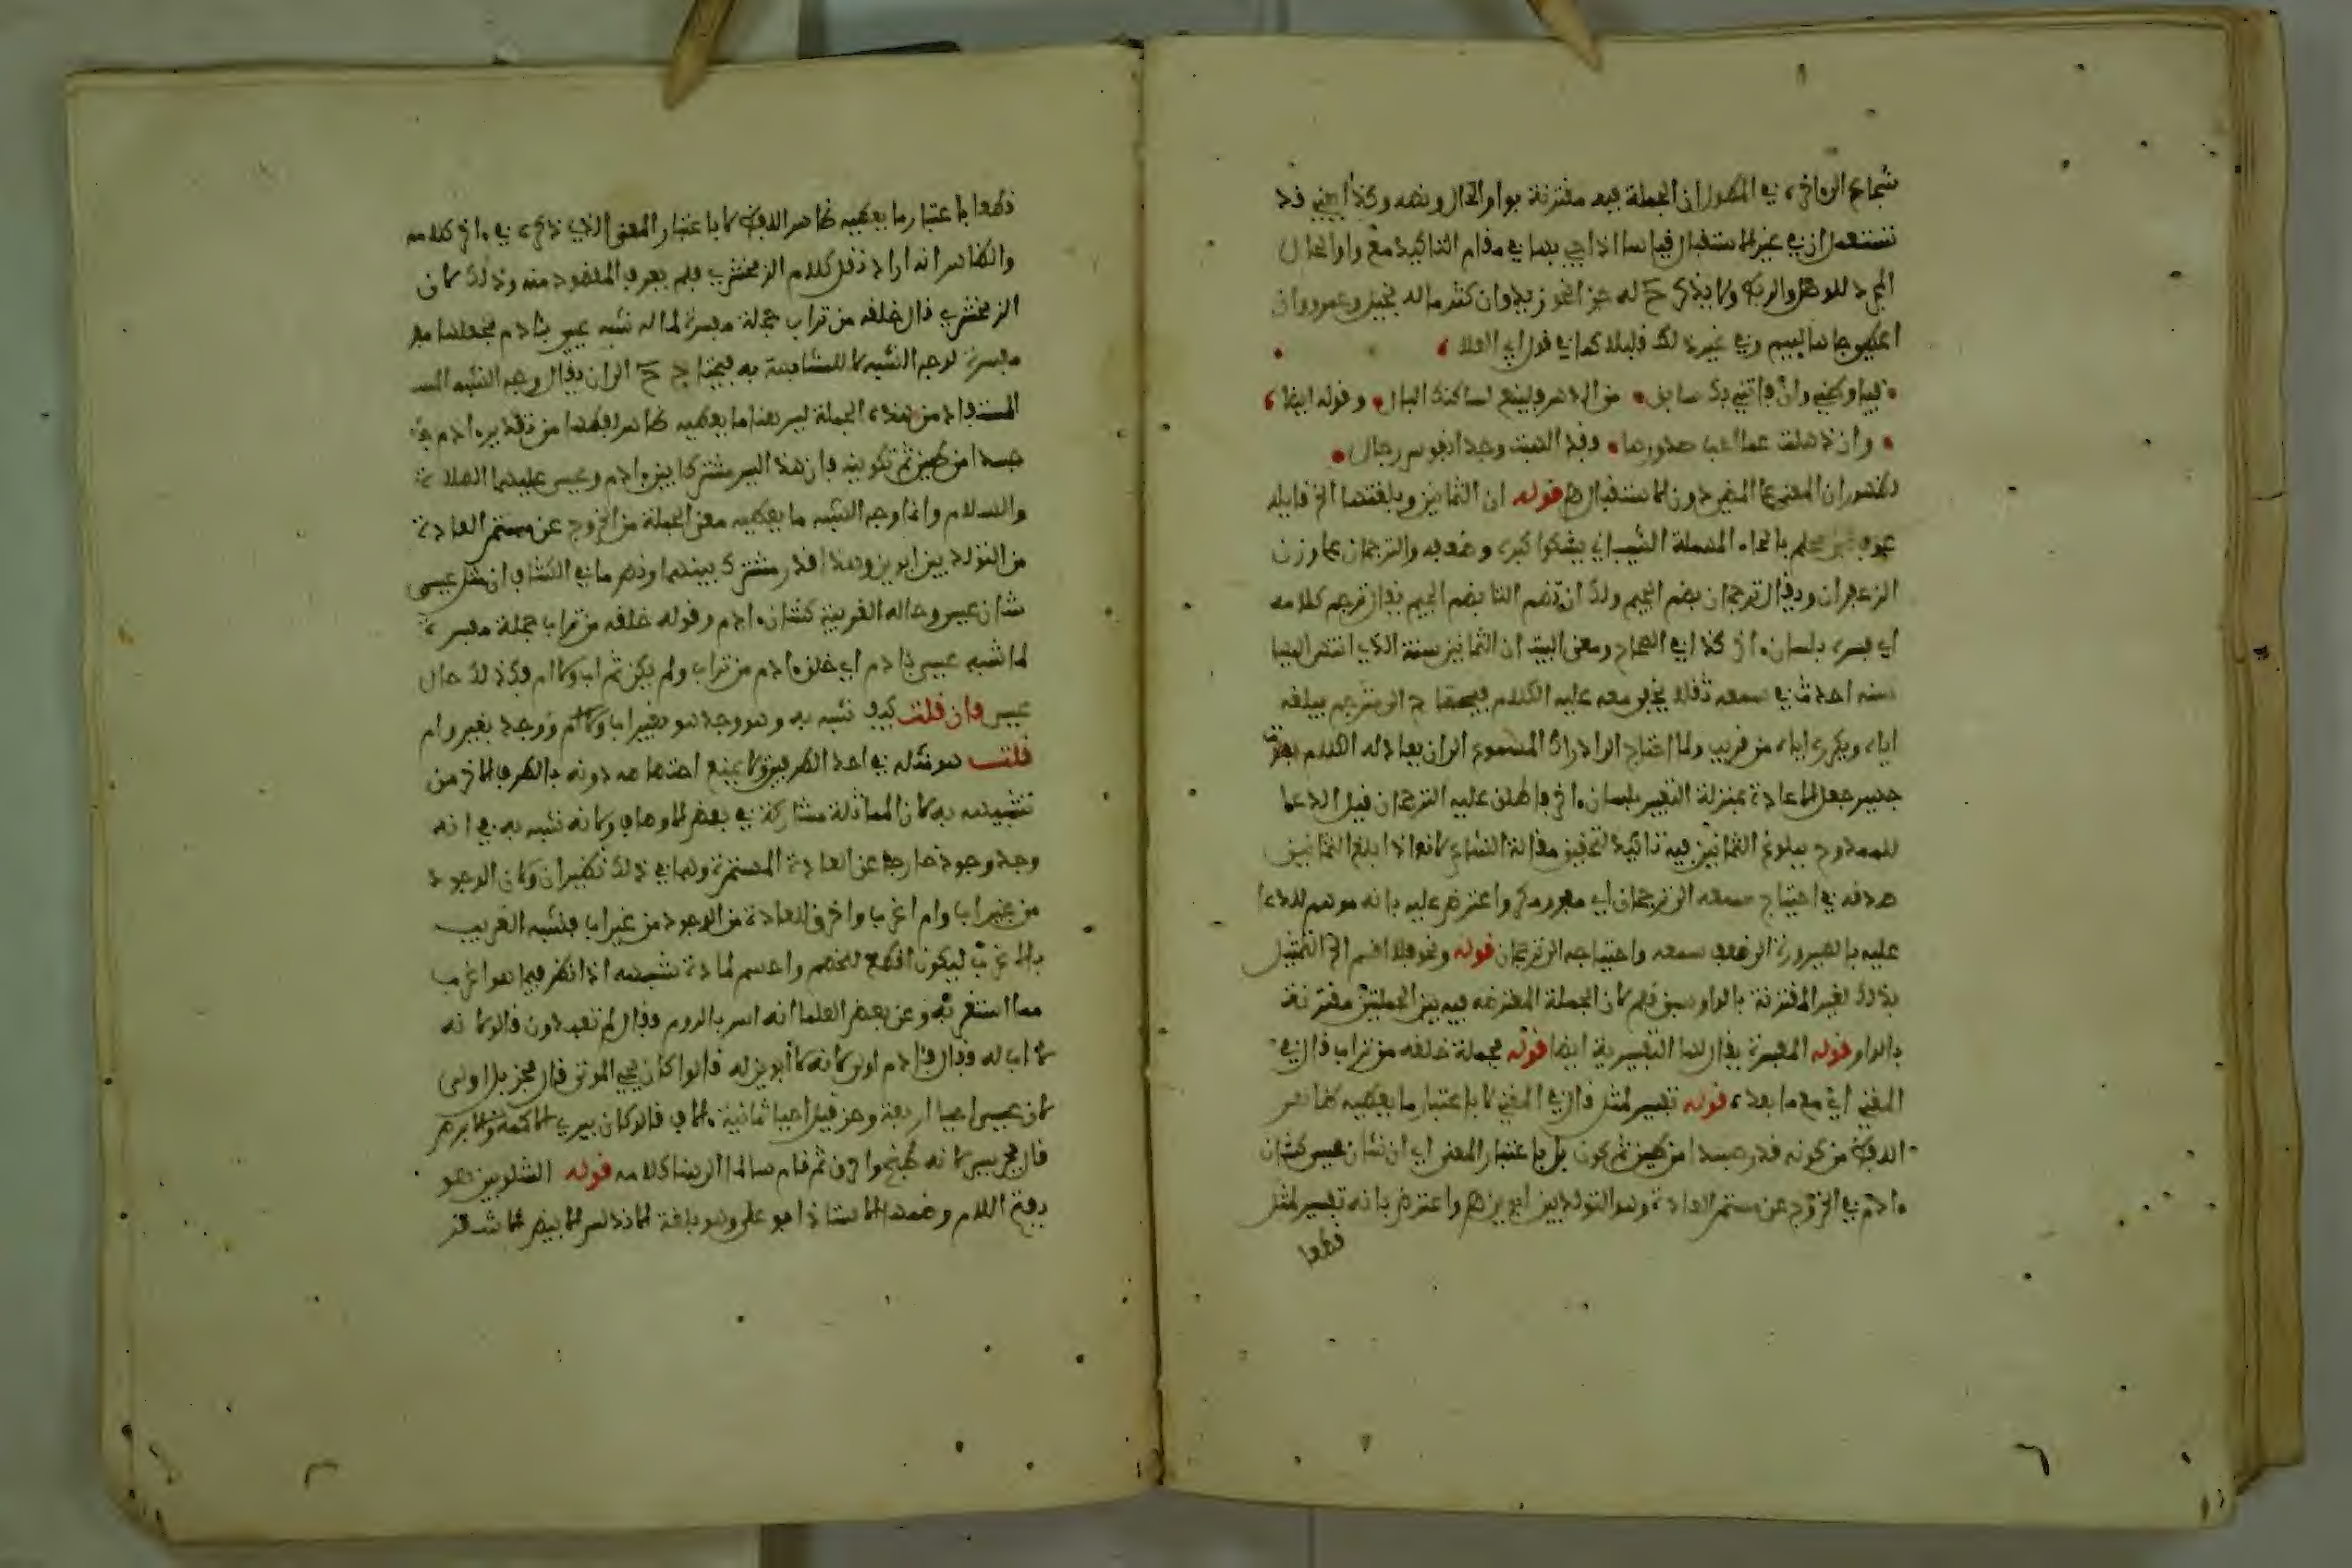 شجاع الى اخره في المطول ان الجملة فيه مقترنة بواو الحال ونصه وكذا يعني قد
تستعمل ان في غير الاستقبال قياسا اذا جيء بها في مقام التاكيد مع واو الحال
المجرد للوصل والربط ولا يذكر ح له جزا نحو زيد وان كثر ماله بخيل وعمرو وان
اعطي جاها لييم وفي غير ذلك قليلا كما في قول ابي العلا
فيا وطني وان فاتني بك سابق من الدهر فلينعم لساكنك البال وقوله ايضا
وان ذهلت عما اجن صدورها فقد الهبت وجدا نفوس رجال
لظهور ان المعنى على المضي دون الاستقبال اهـ قوله ان الثمانين وبلغتها الخ قايله
عوف بن محلم بالحاء المهملة الشيباني يشكوا كبره وضعفه والترجمان على وزن
الزعفران ويقال ترجمان بضم الجيم ولك ان تضم التا بضم الجيم يقال ترجم كلامه
اي فسره بلسان اخر كذا في الصحاح ومعنى البيت ان الثمانين سنة الذي انتهى اليها
سنه احدث في سمعه ثقلا يخفى معه عليه الكلام فيحتاج الى مترجم يبلغه
اياه ويكرره اياه من قريب ولما احتاج الى ادراك المسموع الى ان يعاد له الكلام بصوت
جهير جعل الاعادة بمنزلة التفسير بلسان اخر فاطلق عليه الترجمان قيل الدعا
للممدوح ببلوغ الثمانين فيه تاكيد لتحقيق مقالة الشاعر لانه اذا بلغ الثمانين
صدقه في احتياج سمعه الى ترجمان اي مفرر مكرر واعترض عليه بانه موهم للدعا
عليه بالصيرورة الى ضعف سمعه واحتياجه الى ترجمان قوله ونحو فلا اقسم الخ التمثيل
بذلك لغير المقترنة بالواو سبق قلم لان الجملة المعترضة فيه بين الجملتين مقترنة
بالواو قوله المفسرة يقال لها التفسيرية ايضا قوله فجملة خلقه من تراب قال في
المغني اي مع ما بعده قوله تفسير لمثل قال في المغني لا باعتبار ما يعطيه ظاهر
اللفظ من كونه قدر جسدا من طين ثم كون بل باعتبار المعنى اي ان شان عيسى كشان
ادم في الخروج عن مستمر العادة وهو التولد بين ابوين اهـ واعترض بانه تفسير لمثل
قطعا
قطعا باعتبار ما يعطيه ظاهر اللفظ لا باعتبار المعنى الذي ذكره في اخر كلامه
والظاهر انه اراد نقل كلام الزمخشري فلم يعرف المقصود منه وذلك لان
الزمخشري قال خلقه من تراب جملة مفسرة لما له شبه عيسى بادم فجعلها مف
مفسرة لوجه الشبه لا للمشابهة به فيحتاج ح الى ان يقال وجه الشبه المسـ
المستفاد من هذه الجملة ليس هذا ما يعطيه ظاهر لفظها من تقدير ادم
جسدا من طين ثم تكوينه فان هذا ليس مشتركا بين ادم وعيسى عليهما الصلاة
والسلام وانما وجه الشبه ما يعطيه معنى الجملة من الخروج عن مستمر العادة
من التولد بين ابوين وهذا قدر مشترك بينهما ونص ما في الكشاف ان مثل عيسى
شان عيسى وحاله الغريبة كشان ادم وقوله خلقه من تراب جملة مفسرة
لما شبه عيسى بادم اي خلق ادم من تراب ولم يكن ثم اب ولا ام فكذلك حال
عيسى فان قلت كيف شبه به وهو وجد هو بغير اب ولا ام ووجد بغير وام
قلت هو مثله في احد الطرفين ولا يمنع اختصاصه دونه بالطرف الاخر من
تشبيهه به لان المماثلة مشاركة في بعض الاوصاف ولانه شبه به في انه
وجد وجودا خارجا عن العادة المستمرة وهما في ذلك نظيران ولان الوجود
من غير اب وام اغرب واخرق للعادة من الوجود من غير اب فشبه الغريب
بالاغرب ليكون اقطع للخصم واحسم لمادة شبهته اذا نظر فيما هو اغرب
مما استغربه وعن بعض العلما انه اسر بالروم فقال لم تعبدون قالوا لانه
لا اب له فقال فادم اولى لانه لا ابوين له قالوا كان يحيي الموتى قال فحزقيل اولى
لان عيسى احيا اربعة وحزقيل احيا ثمانية الاف قالوا كان يبري الاكمه والابرص
قال فجرجيس لانه طبخ واحرق ثم قام سالما الى هنا كلامه قوله الشلوبين هو
بفتح اللام وضمها الاستاذ ابو علي وهو بلغة الاندلس الابيض الاشقر